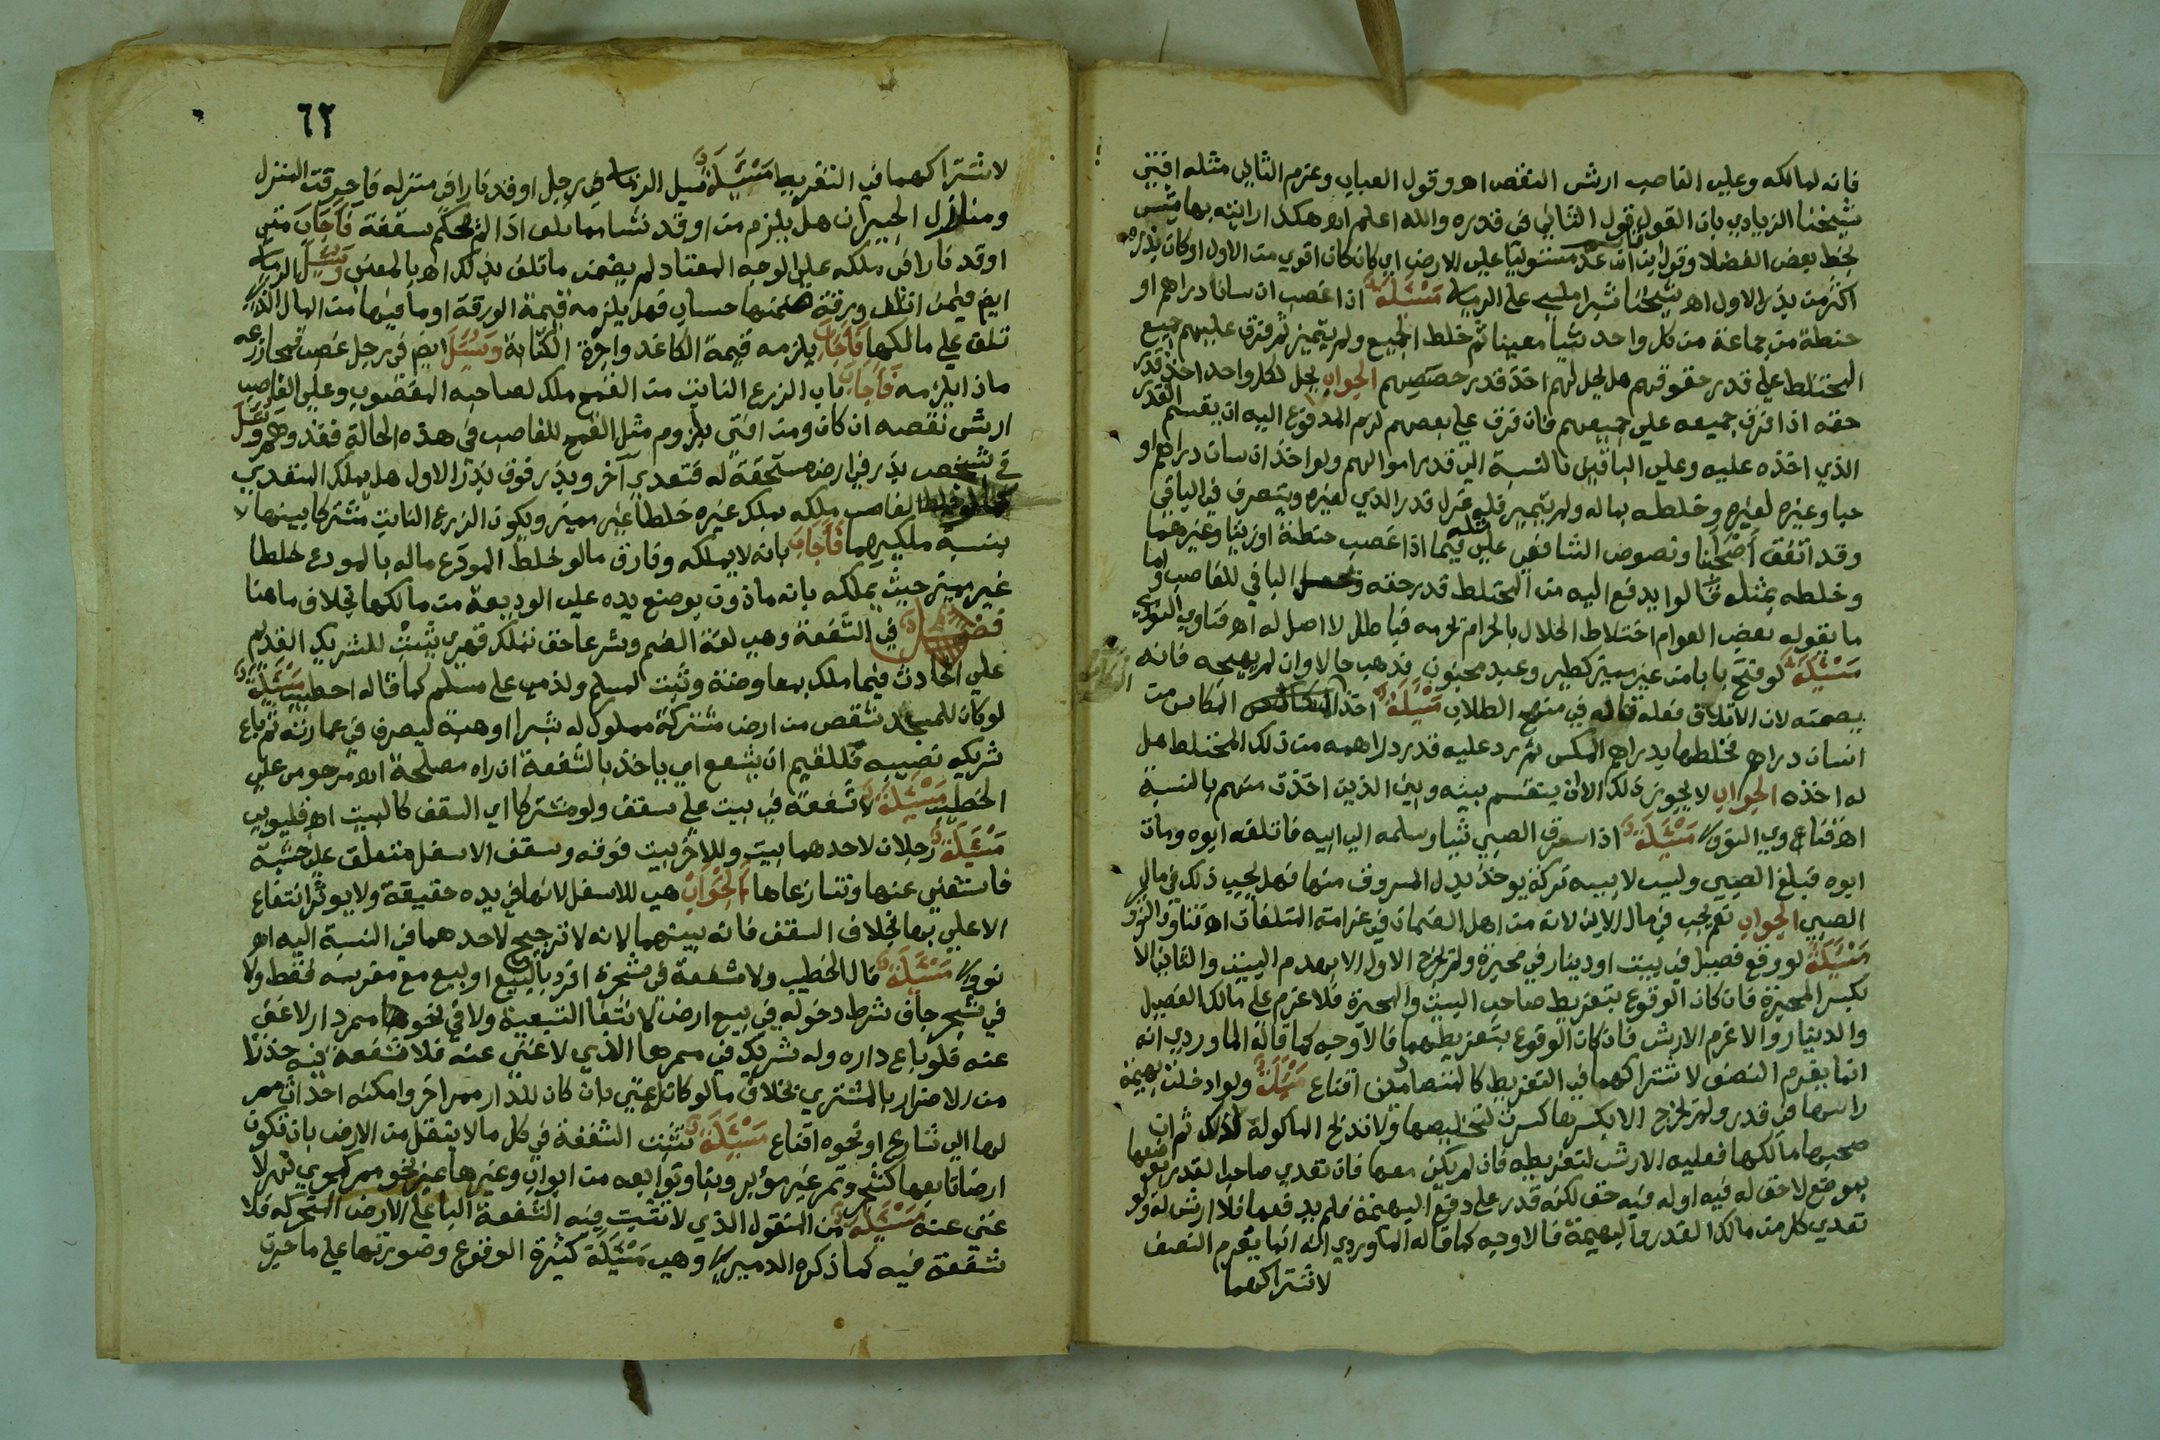 فانه لمالكه وعلى الغاصب ارش النقص اهـ وقول العباب وغرم الثاني مثله افتى
شيخنا الزيادي بان القول قول الثاني في قدره والله اعلم اهـ هكذا رايته بهامش
بخط بعض الفضلا وقول بن ان عد مستوليا على الارض اي كان كان اقوي من الاول او كان بذره
اكثر من بذر الاول اهـ شيخنا شبراملسي على الرملي مسئلة اذا غصب انسانا دراهم او
حنطة من جماعة من كل واحد شيا معينا ثم خلط الجميع ولم يتميز ثم فرق عليهم جميع
المختلط على قدر حقوقهم هل يحل لهم اخذ قدر حصصهم الجواب يحل لكل واحد اخذ قدر
حقه اذا فرق جميعه على جميعهم فان فرق على بعضهم لزم المدفوع اليه ان يقسم القدر
الذي اخذه عليه وعلى الباقين بالنسبة الى قدر اموالهم ولو اخذ انسان دراهم او
حبا وغيره لغيره وخلطه بماله ولم يتميز فله عزل قدر الذي لغيره ويتصرف في الباقي
وقد اتفق اصحابنا ونصوص الشافعي على مثله فيما اذا غصب حنطة او زيتا وغيرهما
وخلطه بمثله قالوا يدفع اليه من المختلط قدر حقه ويحل الباقي للغاصب واما
ما يقوله بعض العوام اختلاط الحلال بالحرام يحرمه فباطل لا اصل له اهـ فتاوي النووي
مسئلة لو فتح بابا من غير مميز كطير وعبد مجنون فذهب حالا وان لم يهيجه فانه
يضمنه لان الاتلاف فعله قاله في منهج الطلاب مسئلة اخذ المكاس من
انسان دراهم فخلطها بدراهم المكس ثم رد عليه قدر دراهمه من ذلك المختلط هل
له اخذه الجواب لا يجوز ذلك الا ان يقسم بينه وبين الذين اخذت منهم بالنسبة
اهـ فتاوي النووي مسئلة اذا سرق الصبي شيا وسلمه الى ابيه فاتلفه ابوه ومات
ابوه فبلغ الصبي وليس لابيه تركة يوخذ بدل المسروق منها فهل يجب ذلك في مال
الصبي الجواب نعم يجب في مال الابن لانه من اهل الضمان في غرامة المتلفات اهـ فتاوي النووي
مسئلة لو وقع فصيل في بيت او دينار في محبرة ولم يخرج الاول الا بهدم البيت والثاني الا
بكسر المحبرة فان كان الوقوع بتفريط صاحب البيت والمحبرة فلا غرم على مالك الفصيل
والدينار والا غرم الارش فان كان الوقوع بتفريطهما فالاوجه كما قاله الماوردي انه
انما يغرم النصف لاشتراكهما في التفريط كالمتصادمين اقناع مسئلة ولو ادخلت بهيمة
راسها في قدر ولم يخرج الا بكسرها كسرت لتخليصها ولا تذبح الماكولة لذلك ثم ان
صحبها مالكها فعليه الارش لتفريطه فان لم يكن معها فان تعدي صاحب القدر بوضعها
بموضع لا حق له فيه او له فيه حق لكنه قدر على دفع البهيمة فلم يدفعها فلا ارش له ولو
تعدي كل من مالك القدر والبهيمة فالاوجه كما قاله الماوردي انه انما يغرم النصف
لاشتراكهما
٦٢
لاشتراكهما في التفريط مسئلة سيل الرملي في رجل اوقد نارا في منزله فاحرقت المنزل
ومنازل الجيران هل يلزم من اوقد شيا مما تلف اذا لم يحكم سقفه فاجاب متى
اوقد نارا في ملكه على الوجه المعتاد لم يضمن ما تلف بذلك اهـ بالمعنى وسيل الرملي
ايضا فيمن اتلف ورقة ضمنها حساب فهل يلزمه قيمة الورقة او ما فيها من المال الذي
تلف على مالكها فاجاب يلزمه قيمة الكاغد واجرة الكتابة وسئل ايضا في رجل غصب قمحا زرعه
ماذا يلزمه فاجاب بان الزرع النابت من القمح ملك لصاحبه المغصوب وعلى الغاصب
ارش نقصه ان كان ومن افتى بلزوم مثل القمح للغاصب في هذه الحالة فقد وهم وسئل
في شخص بذر في ارض مستحقة له فتعدي آخر وبذر فوق بذر الاول هل يملك المتعدي
كما لو خلط الغاصب ملكه بملك غيره خلطا غير مميز ويكون الزرع النابت مشتركا بينهما لا
بنسبة ملكيهما فاجاب بانه لا يملكه وفارق ما لو خلط المودع ماله بالمودع خلطا
غير مميز حيث يملكه بانه ماذون بوضع يده على الوديعة من مالكها بخلاف ما هنا
فصل في الشفعة وهي لغة الضم وشرعا حق تملك قهري يثبت للشريك القديم
على الحادث فيما ملك بمعاوضة وتثبت لمسلم ولذمي على مسلم كما قاله خطيب مسئلة
لو كان للمسجد شقص من ارض مشتركة مملوك له بشرا او هبة ليصرف في عمارته ثم باع
شريكه نصيبه فللقيم ان يشفع اي ياخذ بالشفعة ان راه مصلحة اهـ مرحومي على
الخطيب مسئلة لا شفعة في بيت على سقف ولو مشتركا اي السقف كالبيت اهـ قليوبي
مسئلة رجلان لاحدهما بيت وللاخر بيت فوقه وسقف الاسفل متعلق على خشبة
فاستغني عنها وتنازعاها الجواب هي للاسفل لانها في يده حقيقة ولا يوثر انتفاع
الاعلى بها بخلاف السقف فانه بينهما لانه لا ترجيح لاحدهما في النسبة اليه اهـ
نووي مسئلة قال الخطيب ولا شفعة في شجرة افرد بالبيع او بيع مع مغرسه فقط ولا
في شجر جاف شرط دخوله في بيع ارض لانتفا التبعية ولا في نحو ممر دار لا غنى
عنه فلو باع داره وله شريك في ممرها الذي لا غنى عنه فلا شفعة فيه حذرا
من الاضرار بالمشتري بخلاف ما لو كان له غنى بان كان للدار ممر اخر وامكنه احداث ممر
لها الى شارع او نحوه اقناع مسئلة تثبت الشفعة في كل ما لا ينقل من الارض بان تكون
ارضا تابعها كشجر وثمر غير مؤبر وبنا وتوابعه من ابواب وغيرها غير نحو ممر كمجري نهر لا
غنى عنه مسئلة من المنقول الذي لا تثبت فيه الشفعة البنا على الارض المحتكرة فلا
شفعة فيه كما ذكره الدميري وهي مسئلة كثيرة الوقوع وصورتها على ما حررت